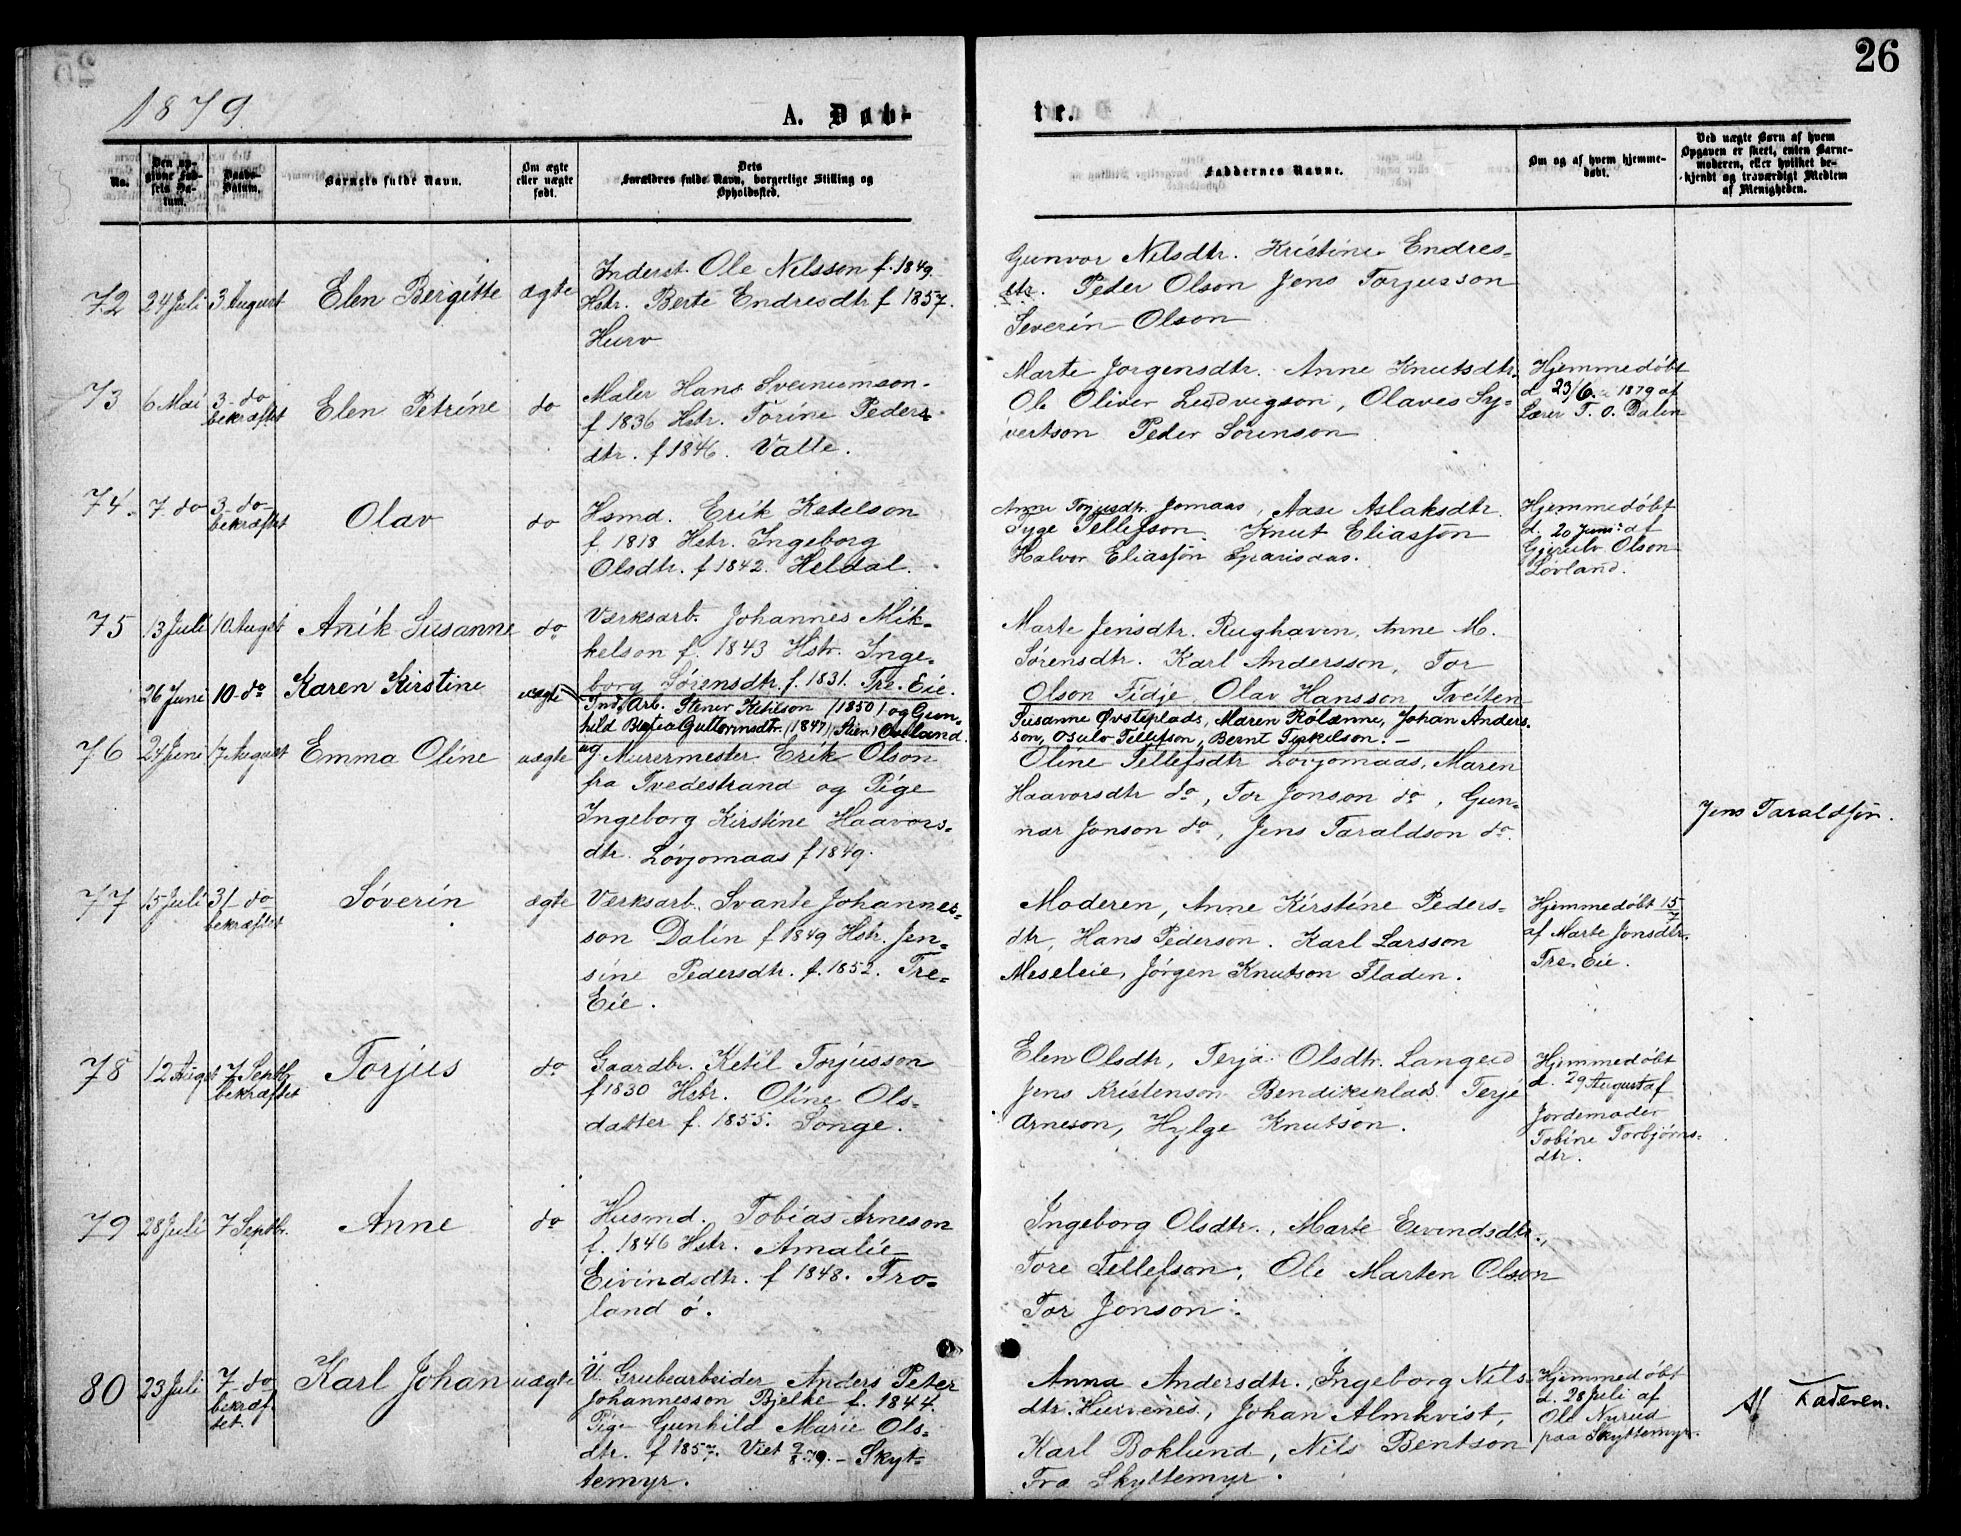 26
1879.
A. Døb-
te.
No.
Den op-
givne Fød-
sels Da-
tum.
Daabs-
Datum.
Barnets fulde Navn.
Om ægte
eller uægte
født.
Dets
Forældres fulde Navn, borgerlige Stilling og
Opholdssted.
Faddernes Navne.
Om og af hvem hjemme-
døbt.
Ved uægte Børn af hvem
Opgaven er skeet, enten Barne-
moderen, eller hvilket be-
kjendt og troværdigt Medlem
af Menigheden.
72 24 Juli 3 August Elen Bergitte ægte
Inderst. Ole Nilsson f. 1849.
Hstr. Berte Endresdtr f 1857.
Hurv
Gunvor Nilsdtr. Kristine Endres-
dtr. Peder Olson Jens Torjusson
Severin Olson
73 6 Mai 3 do
bekræftet Elen Petrine do
Maler Hans Sveinumson
f 1836 Hstr. Torine Peders-
dtr. f 1846. Valle.
Marte Jorgensdtr. Anne Knutsdtr.
Ole Oliver Ludvigson, Olaves Sy-
vertson Peder Sörenson
Hjemmedøbt
d 23/6 1879 af
Lærer T. O. Dalen
74. 7 do 3 do
bekræftet Olav do
Hsmd. Erik Ketelson
f. 1818 Hstr. Ingeborg
Olsdtr. f 1842. Heldal.
Anne Torjusdtr. Jomaas, Aase Aslaksdtr.
Tyge Tellefson. Knut Eliasson
Halvor Eliasson
Hjemmedøbt
d. 20 Juni af
Gjerulv Olson
Løvland.
75 13 Juli 10 August Anik Susanne do
Værksarb. Johannes Mik-
kelson f. 1843 Hstr. Inge-
borg Sørensdtr. f. 1831. Tre. Eie.
Marte Jensdtr. Rughaven, Anne M.
Sørensdtr. Karl Andersson, Tor
Olson Fidje, Olav Hansson Tveiten
26 Juni 10 do Karen Kirstine uægte
Ind. Arb. Stener Ketilson (1850) og Gun-
hild Guttormsdtr. (1847) Østland.
Susanne Øvsteplads, Maren Rolænne, Johan Anders-
son, Osulv Tellefson, Bernt Terkelson. -
76 24 Juni 17 August Emma Oline uægte
Murermester Erik Olson
fra Tvedestrand og Pige
Ingeborg Kirstine Haavors-
dtr. Løvjomaas f 1849.
Oline Tellefsdtr Løvjomaas, Maren
Haavorsdtr do, Tor Jonson do, Gun-
nar Jonson do, Jens Taraldson do.
Jens Taraldson.
77 15 Juli 31 do
bekræftet Söverin ægte
Værksarb. Svante Johannes-
son Dalin f 1849 Hstr. Jen-
sine Pedersdtr. f. 1852. Tre-
Eie.
Moderen, Anne Kirstine Peders-
dtr, Hans Pederson. Karl Larsson
Meseleie, Jörgen Knutson Fladen.
Hjemmedøbt 15/7
af Marte Jonsdtr.
Tre. Eie.
78 12 August 7 Septb.
bekræftet Torjus do
Gaardbr. Ketil Torjusson
f 1830 Hstr. Oline Ols-
datter f. 1855. Songe.
Elen Olsdtr, Terja Olsdtr. Langeid
Jens Kristenson Bendiksplads Terje
Arneson, Hylge Knutson.
Hjemmedöbt
d. 29 August af
Jordemoder
Tobine Torbjörns-
dtr.
79 28 Juli 7 Septbr. Anne do
Husmd. Tobias Arneson
f. 1846 Hstr. Amalie
Eivindsdtr. f 1848. Fro-
land ö.
Ingeborg Olsdtr., Marte Eivindsdtr.,
Tore Tellefson, Ole Marten Olson
Tor Jonson.
80 23 Juli 7 do
bekræf-
tet. Karl Johan uægte
U. Grubearbeider Anders Peter
Johannesson Bjelke f. 1844.
Pige Gunhild Marie Ols-
dtr. f 1857. Viet - Skyt-
temyr.
Anna Andersdtr., Ingeborg Nils-
dtr. Hurvenes, Johan Almkvist,
Karl Boklund, Nils Bentson
Fra Skyttemyr.
Hjemmedöbt
d. 28 Juli af
Ole Nyrud
paa Skyttemyr.
Af Faderen.